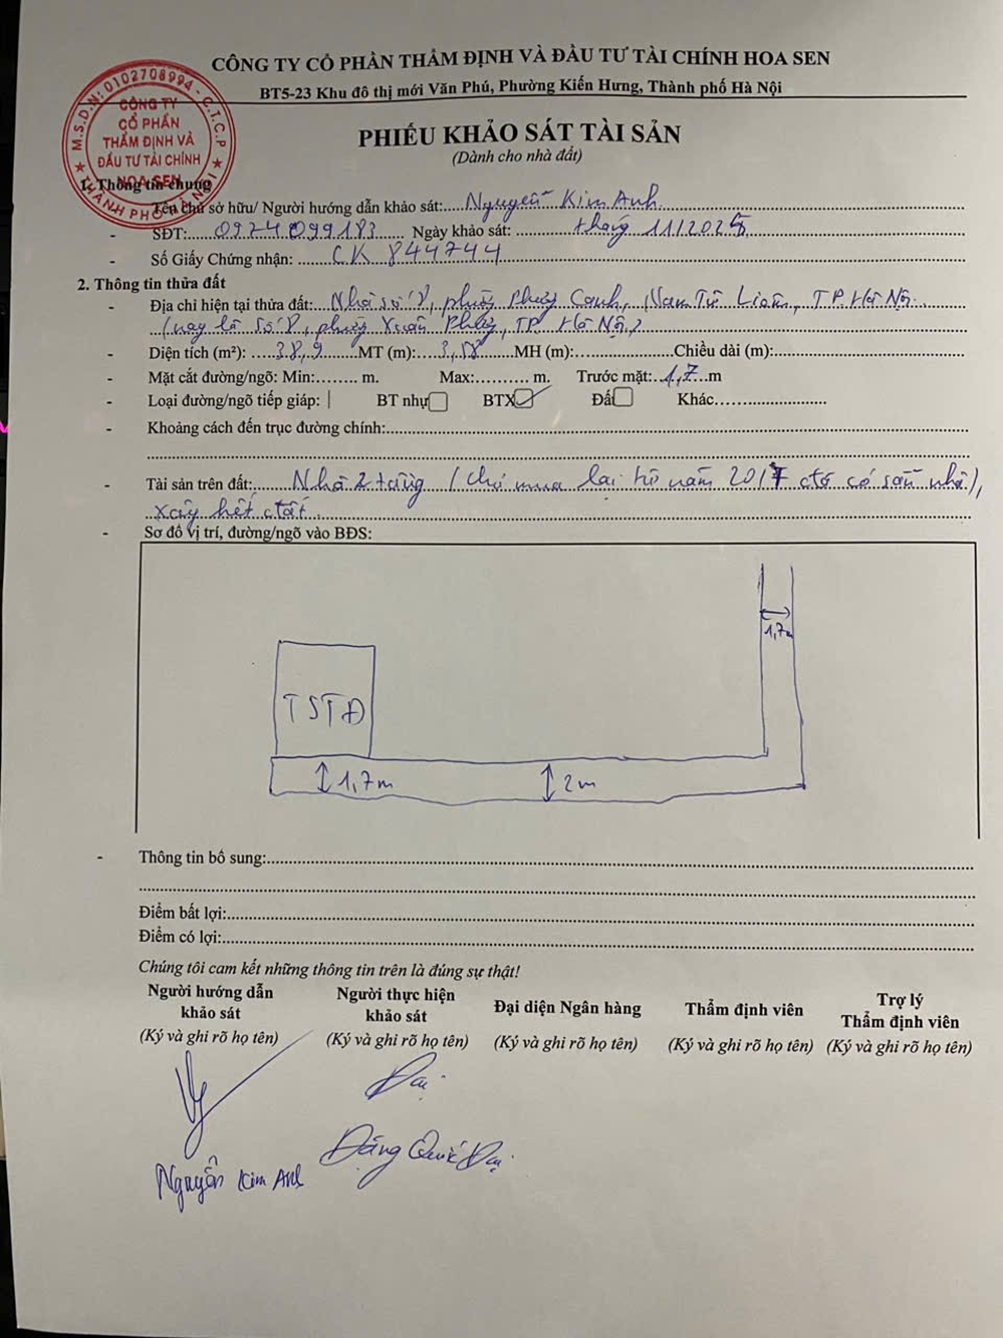 CÔNG TY CỔ PHẦN THẨM ĐỊNH VÀ ĐẦU TƯ TÀI CHÍNH HOA SEN
BT5-23 Khu đô thị mới Văn Phú, Phường Kiến Hưng, Thành phố Hà Nội
M.S.D.N: 0102708994 - C.T.C.P
CÔNG TY
CỔ PHẦN
THẨM ĐỊNH VÀ
ĐẦU TƯ TÀI CHÍNH
HOA SEN
THÀNH PHỐ HÀ NỘI
PHIẾU KHẢO SÁT TÀI SẢN
(Dành cho nhà đất)
1. Thông tin chung
- Tên chủ sở hữu/ Người hướng dẫn khảo sát: Nguyễn Kim Anh
- SĐT: 0974099183 Ngày khảo sát: tháng 11/2025
- Số Giấy Chứng nhận: CK 844744
2. Thông tin thửa đất
- Địa chỉ hiện tại thửa đất: Nhà số 8, phường Phương Canh, Nam Từ Liêm, TP. Hà Nội
(nay là số 8, phường Xuân Phương, TP. Hà Nội)
- Diện tích (m²): 38,9 MT (m): 3,58 MH (m): Chiều dài (m):
- Mặt cắt đường/ngõ: Min: m. Max: m. Trước mặt: 1,7 m
- Loại đường/ngõ tiếp giáp: BT nhự BTX Đấ Khác
- Khoảng cách đến trục đường chính:
- Tài sản trên đất: Nhà 2 tầng (chủ mua lại từ năm 2017 đã có sẵn nhà),
xây hết đất.
- Sơ đồ vị trí, đường/ngõ vào BĐS:
1,7m
TSTĐ
1,7m 2m
- Thông tin bổ sung:
Điểm bất lợi:
Điểm có lợi:
Chúng tôi cam kết những thông tin trên là đúng sự thật!
Người hướng dẫn khảo sát Người thực hiện khảo sát Đại diện Ngân hàng Thẩm định viên Trợ lý Thẩm định viên
(Ký và ghi rõ họ tên) (Ký và ghi rõ họ tên) (Ký và ghi rõ họ tên) (Ký và ghi rõ họ tên) (Ký và ghi rõ họ tên)
Đại
Nguyễn Kim Anh Đặng Quốc Đại